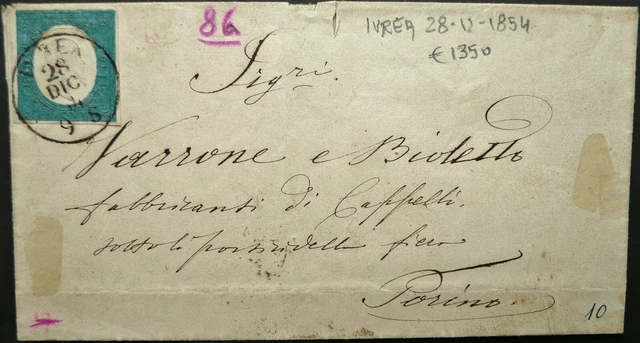 86
IVREA 28-12-1854
€1350
IVREA
28
DIC
9 S
Sigri.
Varrone e Bioletto
fabbricanti di Cappelli.
sotto li portici della fiera
Torino.
10